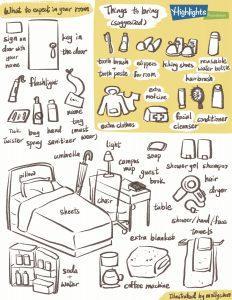 What to expect in your room
sign on
door with
your
name
key in
the door
flashlight
name
tag
Tick
twister
bug
spray
hand
sanitizer
(must
wear)
Things to bring
(suggested)
Highlights
tooth brush
tooth paste
slippers
for room
hiking shoes
reusable
water bottle
hairbrush
extra
medicine
extra clothes
facial
cleanser
conditioner
umbrella
light
campus
map
guest
book
soap
shower gel
shampoo
pillow
sheets
chair
table
hair
dryer
shower/hand/face
towels
extra blanket
soda
water
coffee machine
Illustrated by